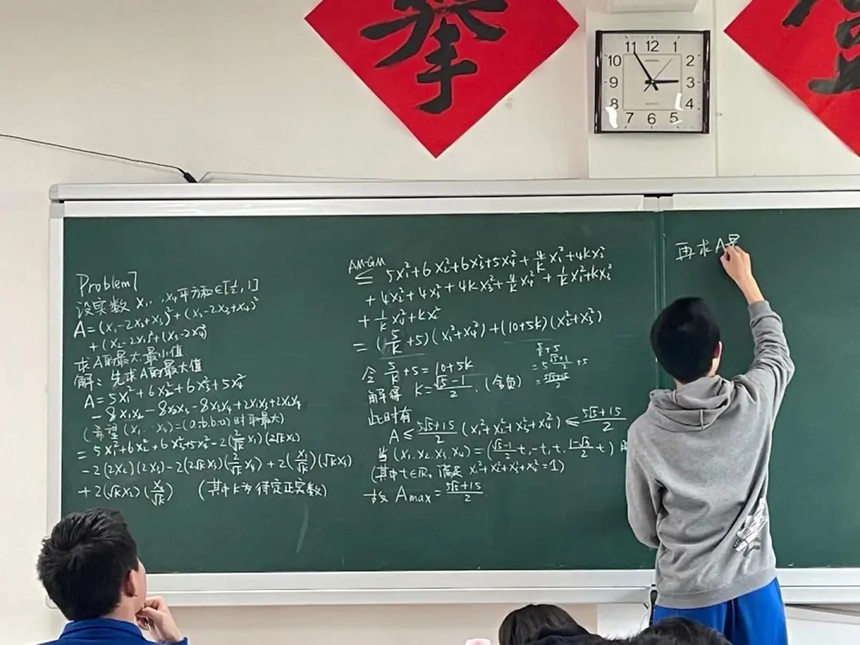 拳
11 12 1
10 2
9 3
8 4
7 6 5
Problem 7
设实数 x₁, …, x₄平方和∈[½, 1]
A=(x₁-2x₂+x₃)²+(x₂-2x₃+x₄)²
+(x₂-2x₁)²+(x₃-2x₄)²
求A的最大最小值
解: 先求A的最大值
A=5x₁²+6x₂²+6x₃²+5x₄²
-8x₁x₂-8x₂x₃-8x₃x₄+2x₁x₃+2x₂x₄
(希望(x₁…x₄)=(a,b,-b,-a)时取最大)
=5x₁²+6x₂²+6x₃²+5x₄²-2(2/√k x₁)(2√k x₂)
-2(2x₂)(2x₃)-2(2√k x₃)(2/√k x₄)+2(x₁/√k)(√k x₃)
+2(√k x₂)(x₄/√k) (其中k为待定正实数)
AM-GM
≤ 5x₁²+6x₂²+6x₃²+5x₄²+4/k x₁²+4kx₂²
+4x₂²+4x₃²+4kx₃²+4/k x₄²+1/k x₁²+kx₃²
+1/k x₄²+kx₂²
=(5/k+5)(x₁²+x₄²)+(10+5k)(x₂²+x₃²)
令 5/k+5=10+5k
解得 k=(√5-1)/2. (舍负)
5/k+5
=5·(√5+1)/2+5
=(5√5+15)/2
此时有
A≤(5√5+15)/2 (x₁²+x₂²+x₃²+x₄²)≤(5√5+15)/2
当(x₁, x₂, x₃, x₄)=((√5-1)/2 t, -t, t, (1-√5)/2 t)
(其中t∈R, 满足x₁²+x₂²+x₃²+x₄²=1)
故 Amax=(5√5+15)/2
再求A最